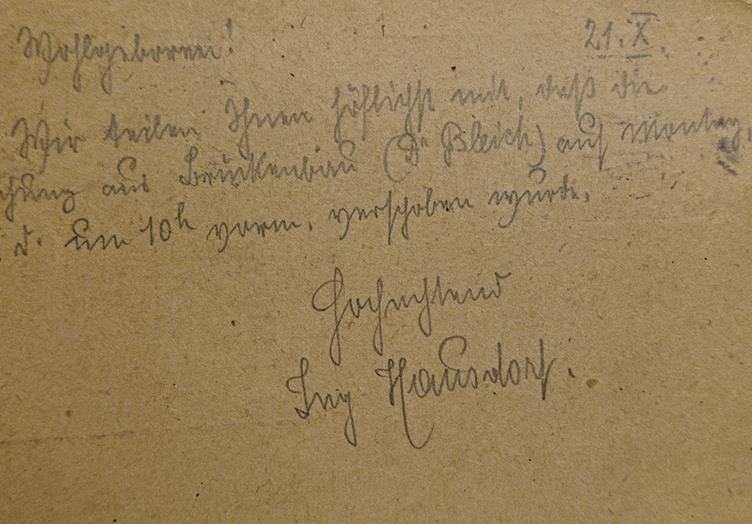 Wohlgeboren! 21.X.
Wir teilen Ihnen höflichst mit, daß die
chung aus Brückenbau (Dr Bleich) auf Montag,
d. um 10h vorm. verschoben wurde.
Hochachtend
Ing Hausdorf.